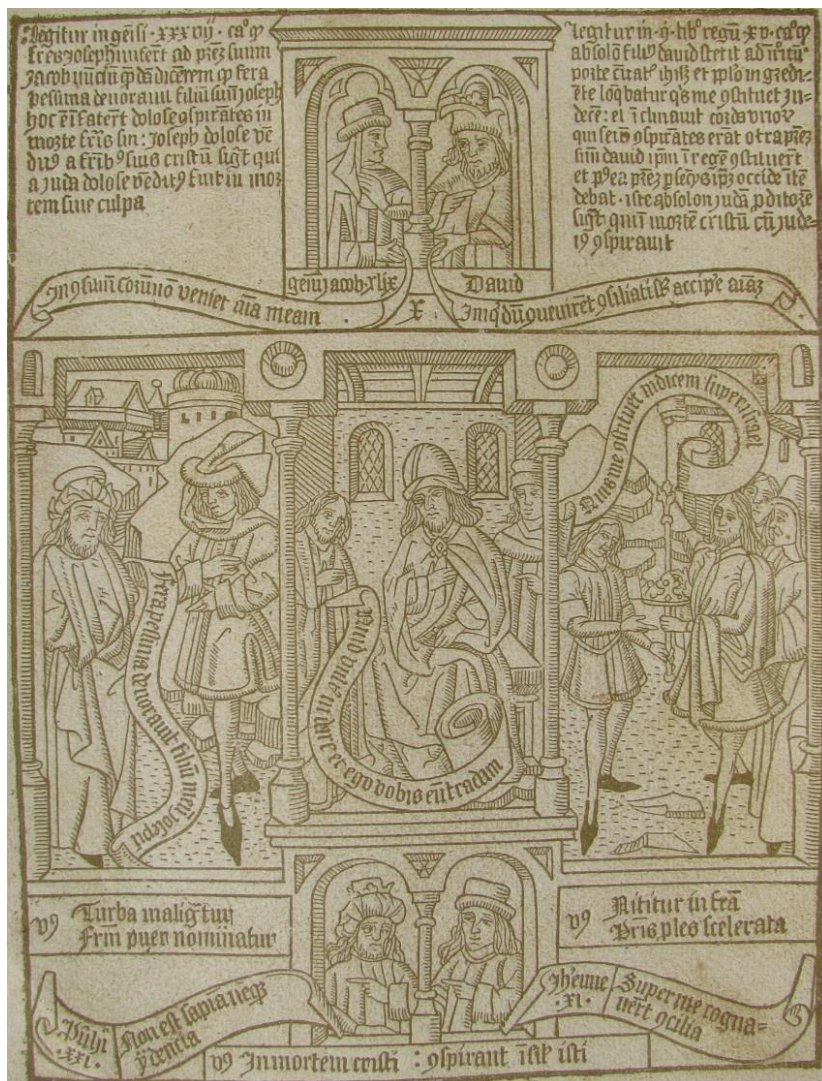 Legitur in gēsi · xxxvij · ca° q̄
frēs Joseph miserūt ad prēz suum
Jacob nūciū q̄dā dicētem q̄ fera
pessima devoravit filiū suū Joseph
hoc ēī fatērt dolose 9spirātes in
mortē frīs sin: Joseph dolose vē
dit9 a frīb9 suis cristū sigt qui
a Juda dolose vēdit9 fuit in mor
tem sine culpa
Legitur in · ij · libº regū xv · caº q̄
absolō fili9 david stetit ad ītroitū
porte civitat et pplo ingredi-
ēte loqbatur q̄s me 9stituet Ju-
dicē: et īclinavit corda virorz
qui secū 9spirātes erāt 9tra prēz
sūū david ipm ī regē 9stituert
et p9ea prēz psequēs ipz occide
debat · iste absolon Judā pditorē
sigt qui ī mortē cristū cū jude-
is 9spiravit
genū jacob · xlix
David
In 9siliū eorū nō veniet aīa mea
X
In eo dū 9venirēt 9siliati sūt accipe aīaz
Fera pessima devoravit filiū meū Joseph
Quid vultis m dare et ego vobis eū tradam
Quis me 9stituet iudicem super israel
v9 Turba maligt tuy
Frm puer nominatur
v9 Nititur in frā
Pris ples scelerata
Pūbi
· xxi ·
Non est sapiā neqz
p̄dēcia
Jheremie
· xi ·
Super me cogita-
vērt 9cilia
v9 In mortem cristi : 9spirant īsil isti